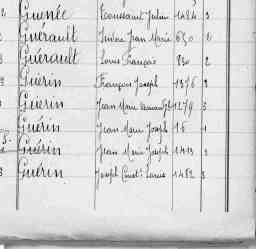 Guenée Toussaint Julien 1424 3
Guérault Jean Marie 650 2
Guérault Louis François 230 2
Guérin François Joseph 1376 2
Guérin Jean Marie 1279 3
Guérin Jean Marie Joseph 16 1
Guérin Jean Marie Joseph 1413 3
Guérin Joseph Louis 1482 3